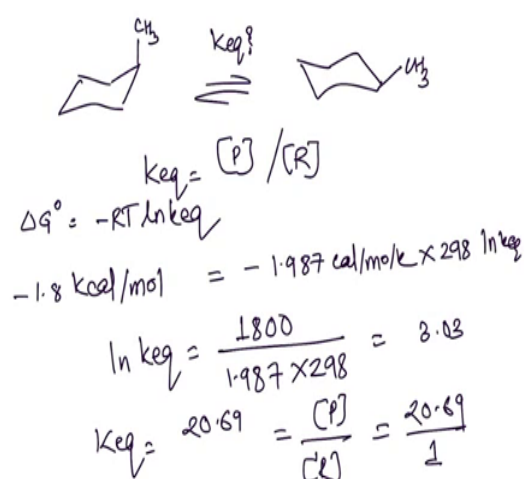 CH3
Keq?
CH3
Keq = [P] / [R]
ΔG° = -RT ln keq
-1.8 kcal/mol = - 1.987 cal/mol k × 298 ln keq
ln keq = 1800 / 1.987 × 298 = 3.03
Keq = 20.69 = [P] / [R] = 20.69 / 1